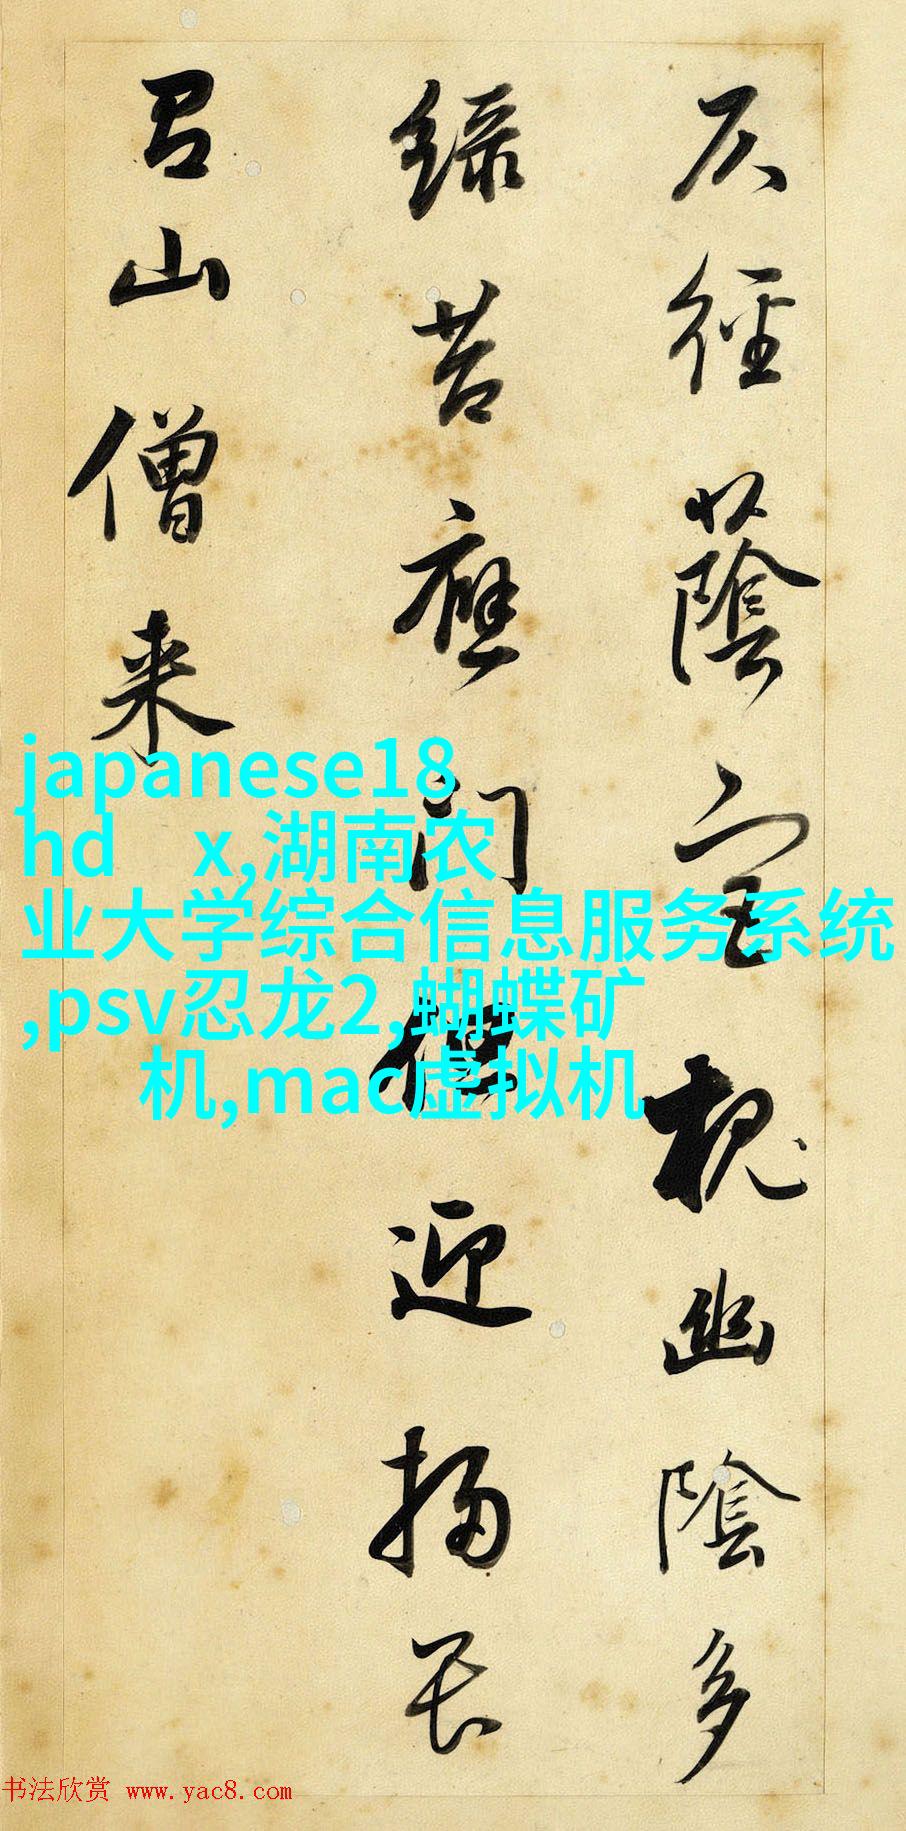 仄徑蔭宮槐幽陰多
綠苔應門但迎掃畏
有山僧来
japanese18
hd x,湖南农
业大学综合信息服务系统
,psv忍龙2,蝴蝶矿
机,mac虚拟机
书法欣赏 www.yac8.com